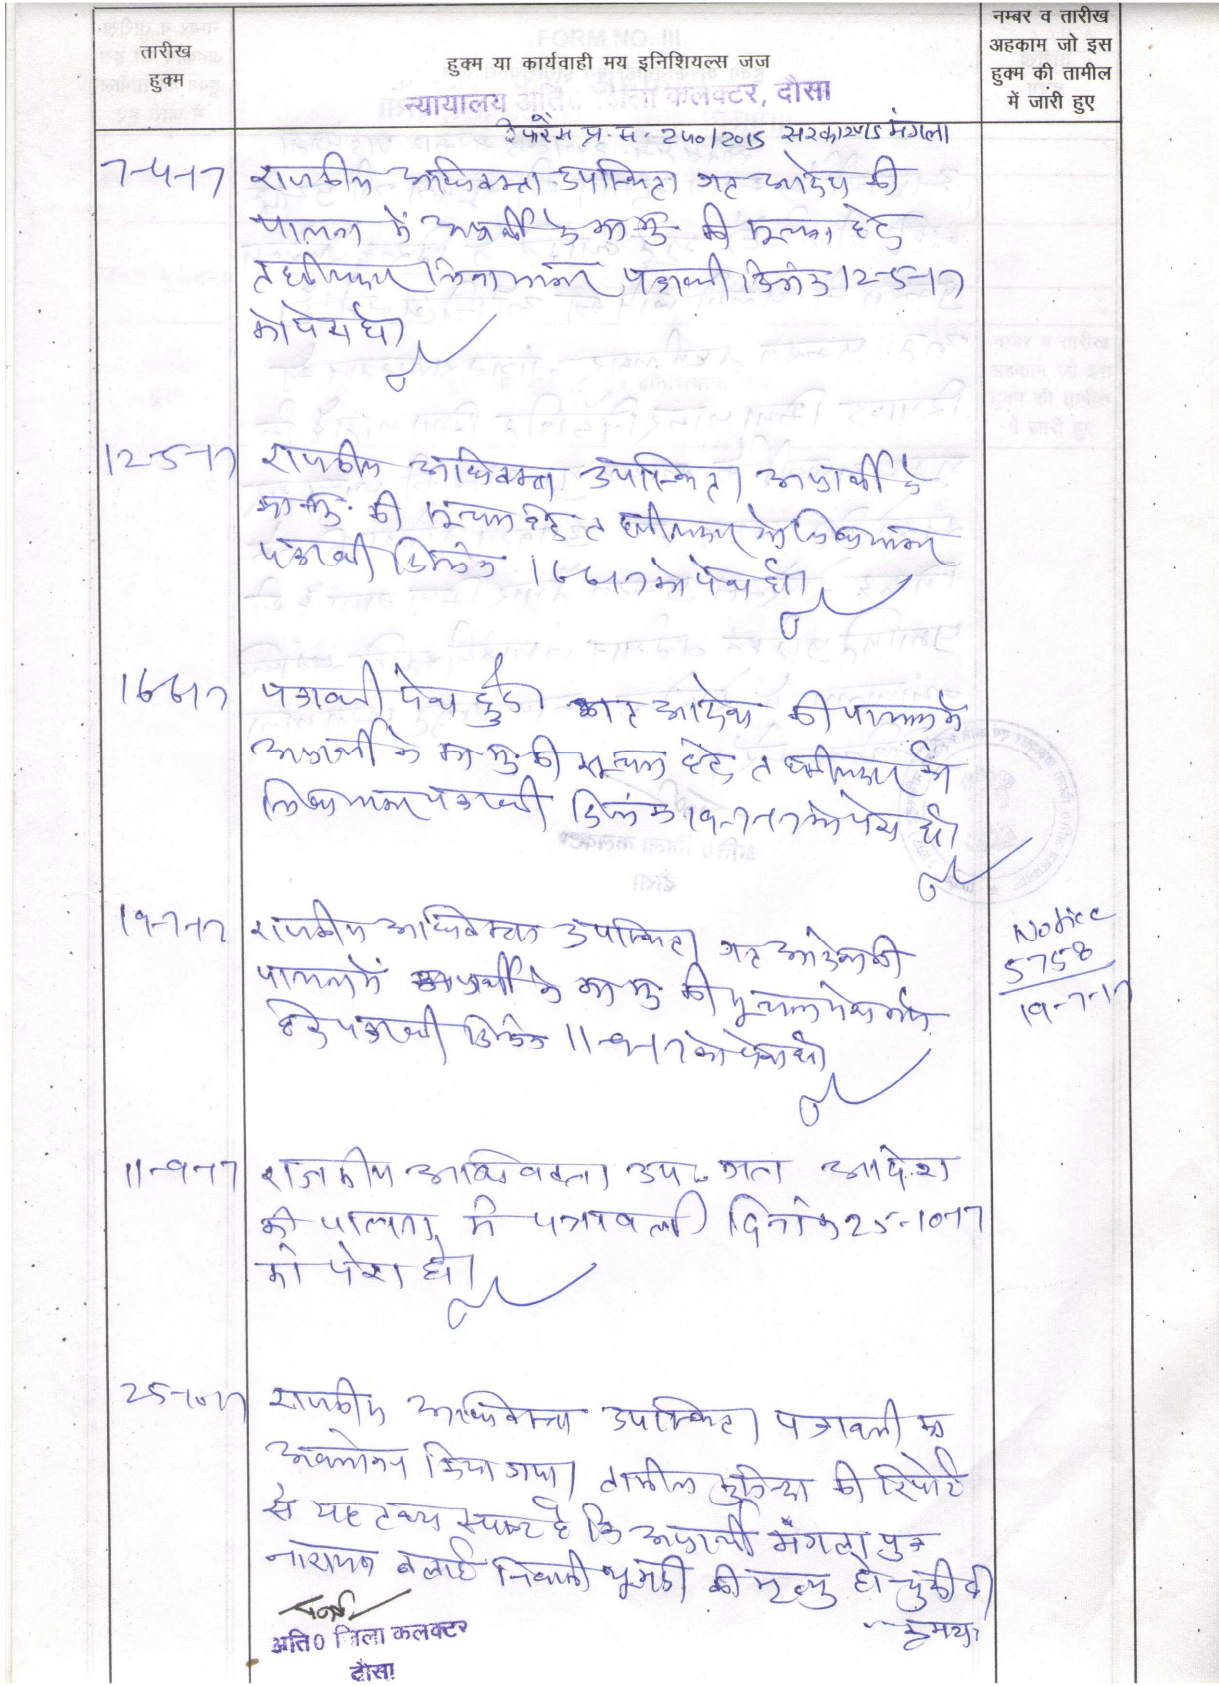 तारीख
हुक्म
हुक्म या कार्यवाही मय इनिशियल्स जज
नम्बर व तारीख
अहकाम जो इस
हुक्म की तामील
में जारी हुए
न्यायालय अति0 जिला कलक्टर, दौसा
रेफरेंस प्र.स. 240/2015 सरकार मंगला
7-4-17 राजकीय अधिवक्ता उपस्थित। गत आदेश की
पालना में अप्रार्थी के का.मु. की सूचना हेतु
तहसीलदार लिखा जावे पत्रावली दिनांक 12-5-17
को पेश हो।
12-5-17 राजकीय अधिवक्ता उपस्थित। अप्रार्थी के
का.मु. की सूचना हेतु तहसीलदार को लिखा जावे
पत्रावली दिनांक 16-6-17 को पेश हो।
16-6-17 पत्रावली पेश हुई। गत आदेश की पालना में
अप्रार्थी के का.मु. की सूचना हेतु तहसीलदार को
लिखा जावे पत्रावली दिनांक 19-7-17 को पेश हो।
19-7-17 राजकीय अधिवक्ता उपस्थित। गत आदेश की
पालना में अप्रार्थी के का.मु. की सूचना पेश
हेतु पत्रावली दिनांक 11-9-17 को पेश हो।
Notice
5758
19-7-17
11-9-17 राजकीय अधिवक्ता उप. गत आदेश
की पालना में पत्रावली दिनांक 25-10-17
को पेश हो।
25-10-17 राजकीय अधिवक्ता उपस्थित। पत्रावली का
अवलोकन किया गया। तामील कुनिन्दा की रिपोर्ट
से यह तथ्य स्पष्ट है कि अप्रार्थी मंगला पुत्र
नारायण बलाई निवासी की मृत्यु हो चुकी थी
क्रमशः
अति0 जिला कलक्टर
दौसा